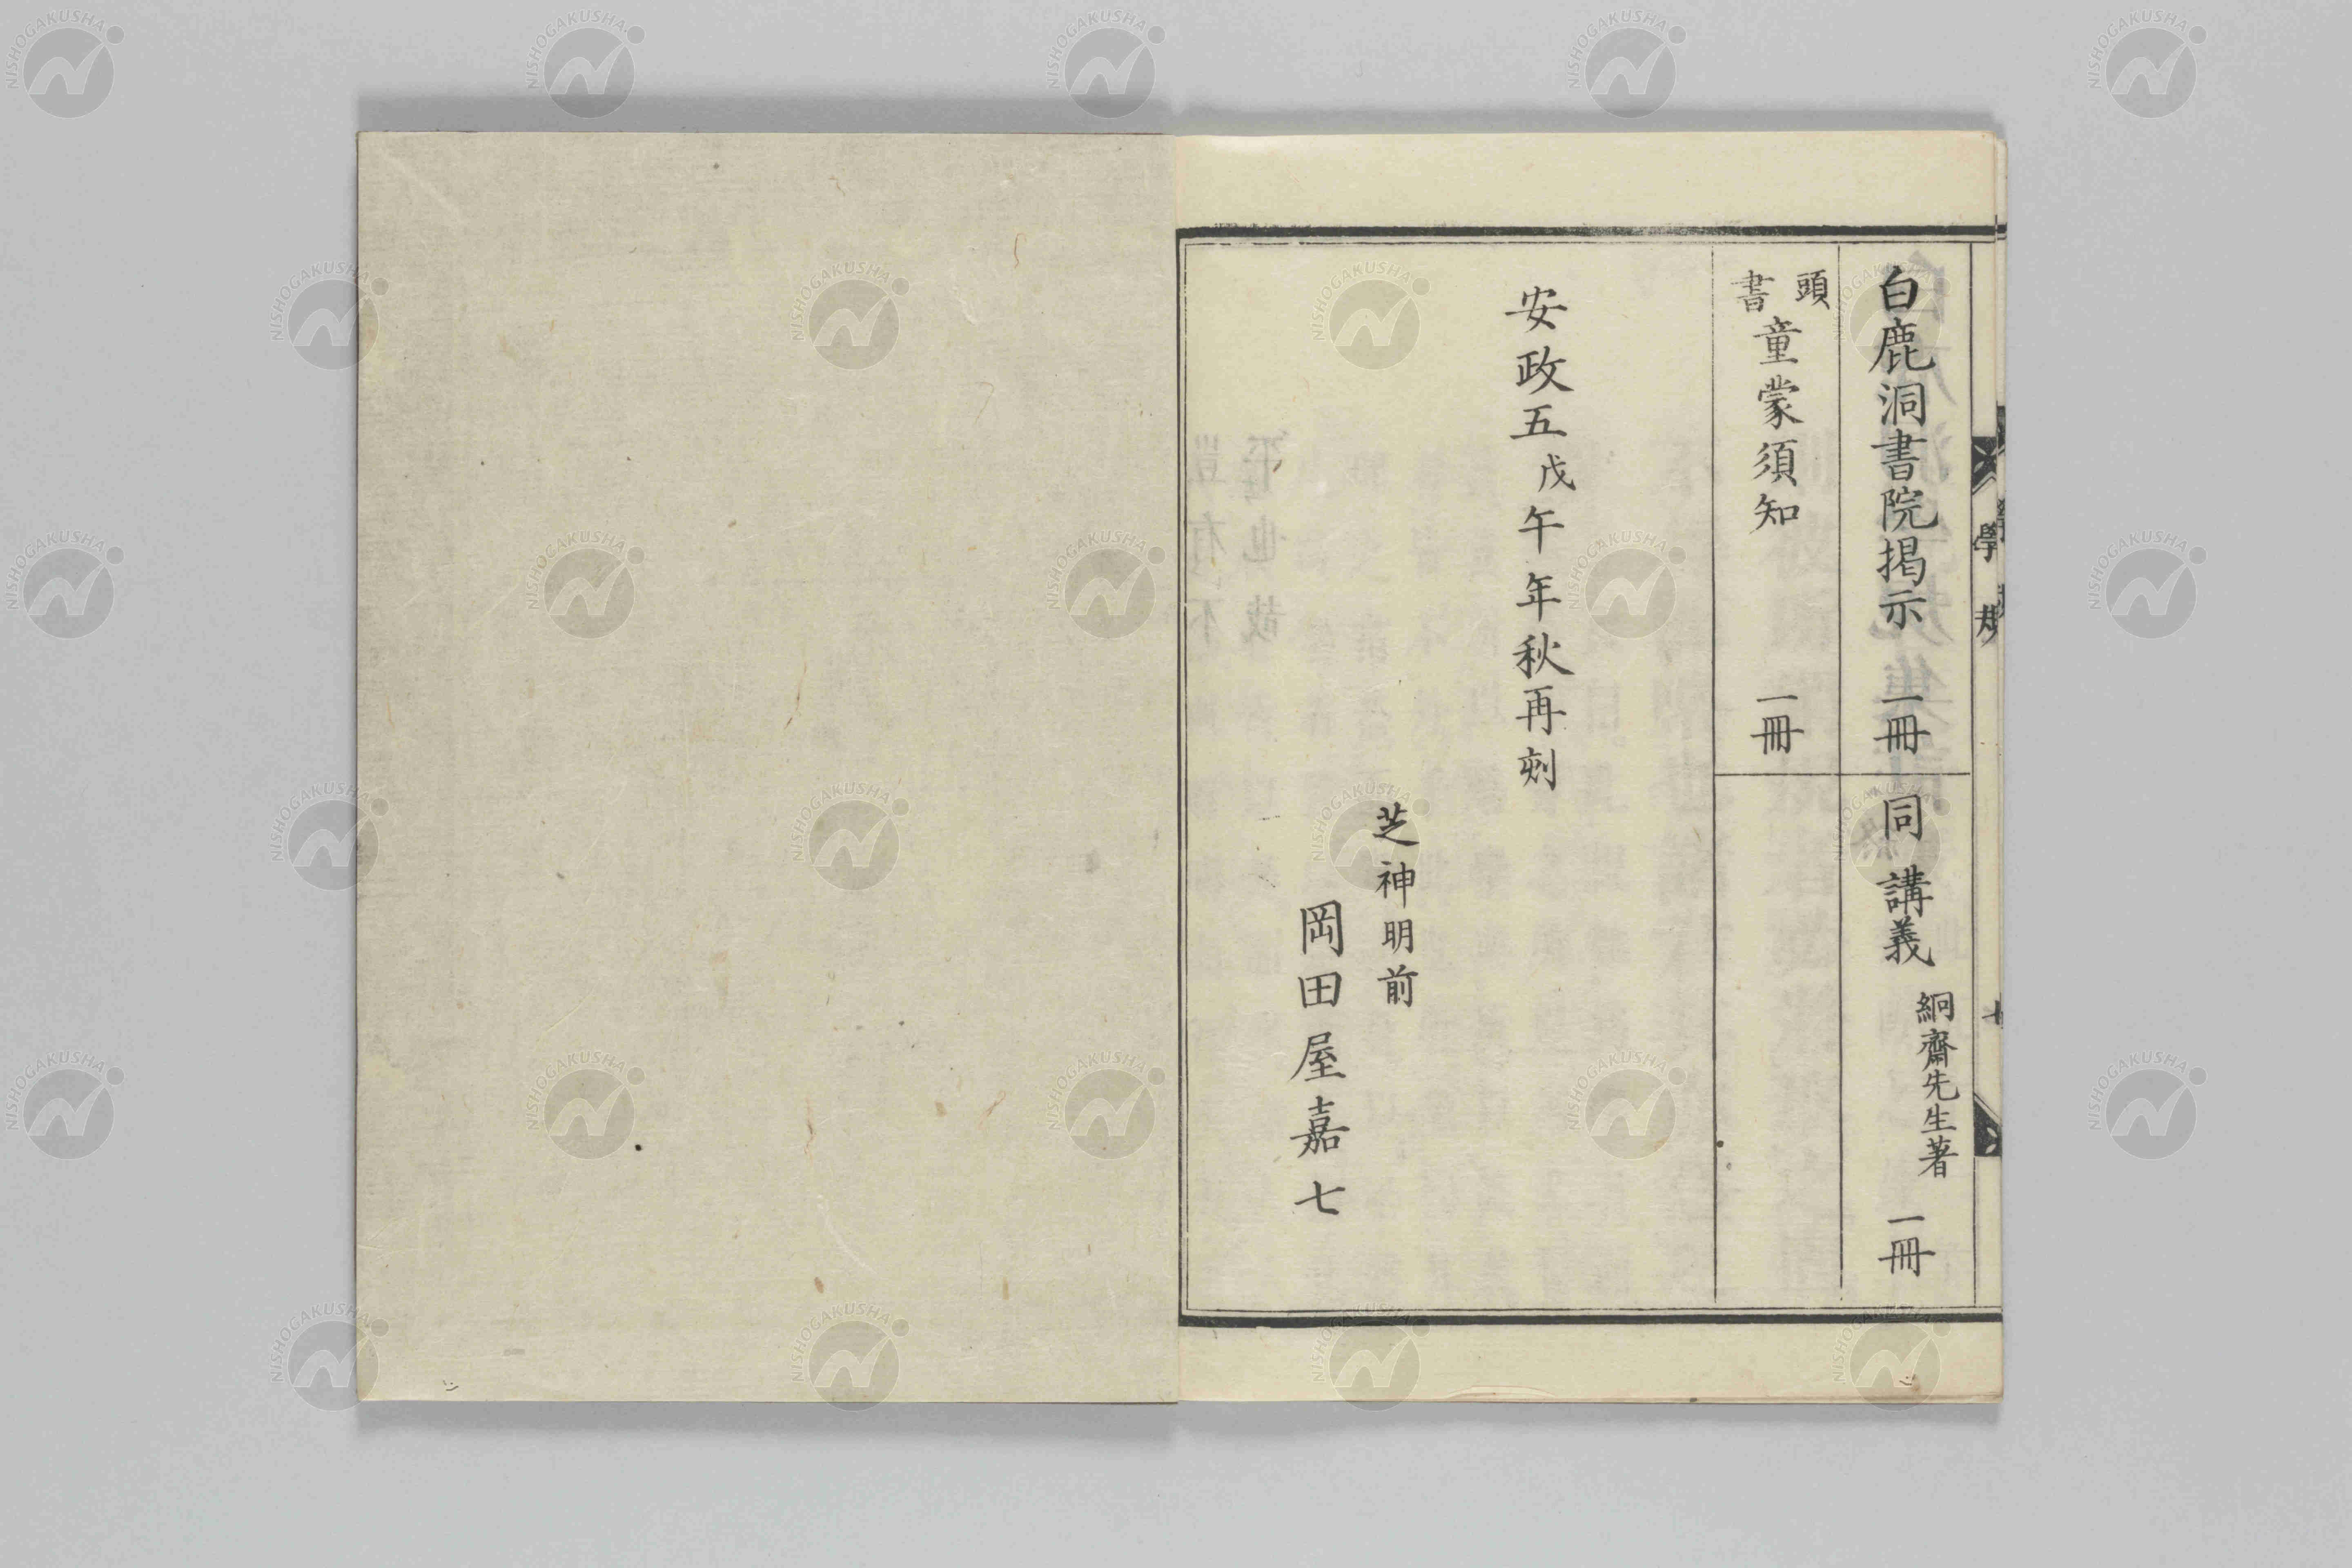 白鹿洞書院掲示 一冊
同講義 絅齋先生著 一冊
頭書 童蒙須知 一冊
安政五戊午年秋再刻
芝神明前
岡田屋嘉七
學規
NISHOGAKUSHA